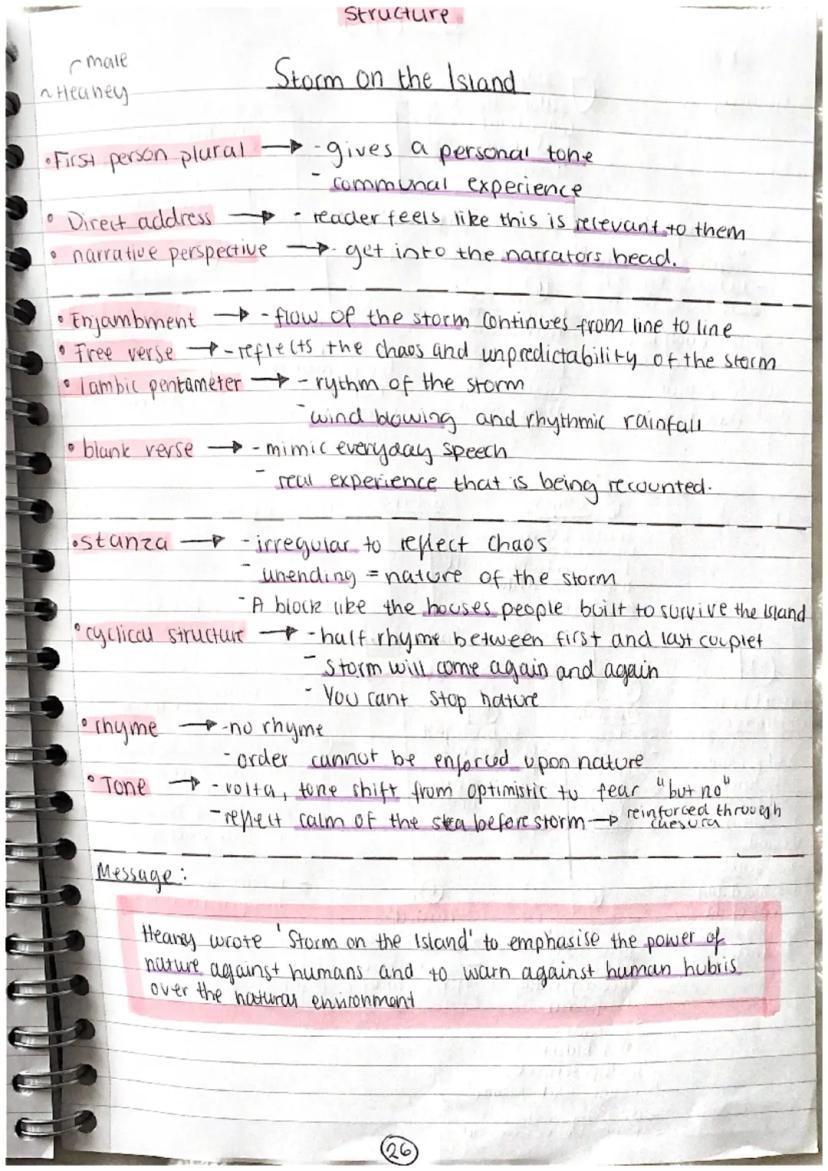 Structure.
male
Heaney
Storm on the Island
• First person plural → - gives a personal tone
- communal experience
• Direct address → - reader feels like this is relevant to them
• narrative perspective → - get into the narrators head.
• Enjambment → - flow of the storm continues from line to line
• Free verse → - reflects the chaos and unpredictability of the storm
• Iambic pentameter → - rythm of the storm
- wind blowing and rhythmic rainfall
• blank verse → - mimic everyday speech
- real experience that is being recounted.
• stanza → - irregular to reflect chaos
- unending = nature of the storm
- A block like the houses people built to survive the Island
• cyclical structure → - half rhyme between first and last couplet
- Storm will come again and again
- You cant stop nature
• rhyme → - no rhyme
- order cannot be enforced upon nature
• Tone → - volta, tone shift from optimistic to fear "but no"
- reflect calm of the sea before storm → reinforced through
caesura
Message:
Heaney wrote 'Storm on the Island' to emphasise the power of
nature against humans and to warn against human hubris
over the natural environment
26